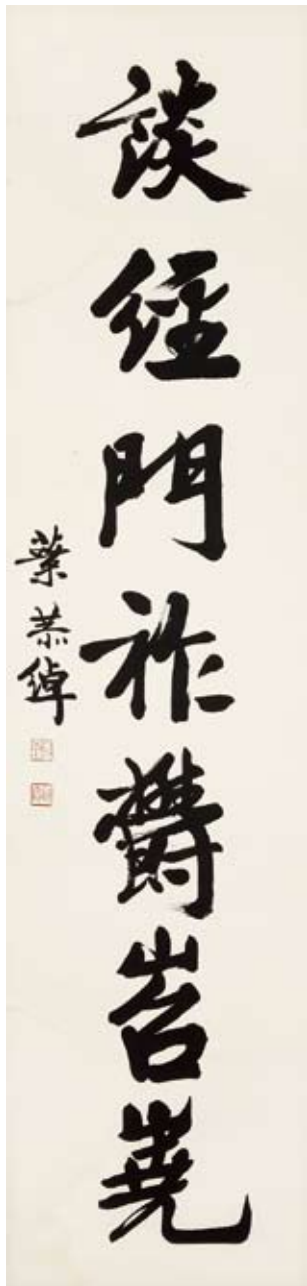 談經門祚鬱岧嶢
葉恭綽